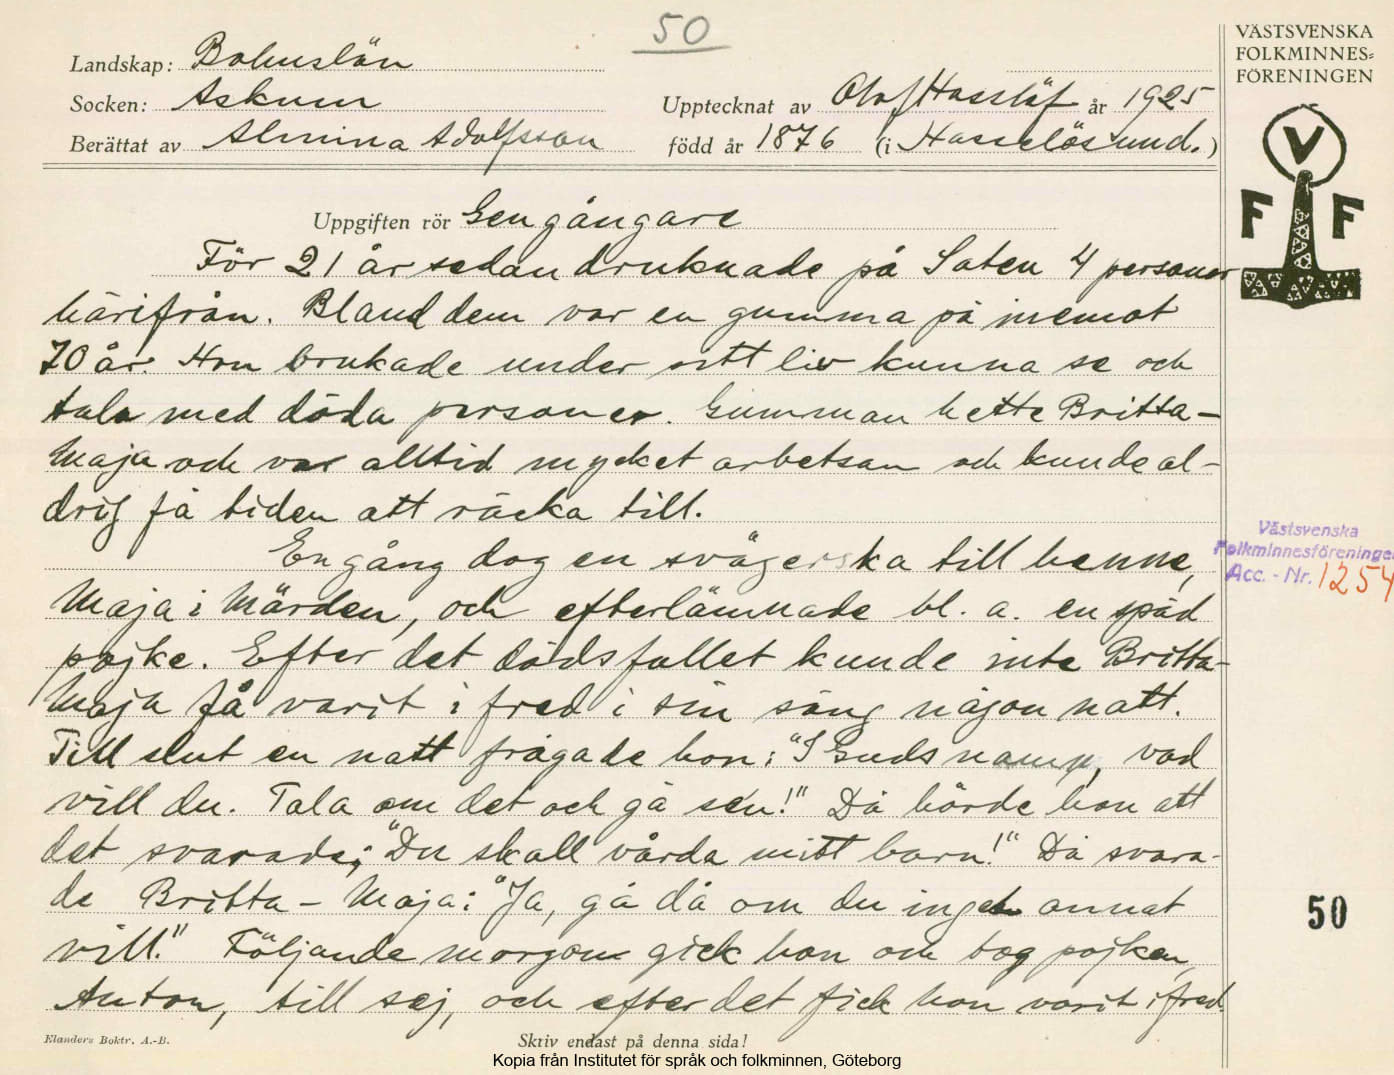 50
VÄSTSVENSKA
FOLKMINNES=
FÖRENINGEN
Landskap: Bohuslän
Socken: Askum
Upptecknat av Olof Hasslöf år 1925
Berättat av Almina Adolfsson
född år 1876 (i Hasselösund.)
V
F F
Uppgiften rör Gengångare
För 21 år sedan druknade på Saten 4 personer
härifrån. Bland dem var en gumma på inemot
70 år. Hon brukade under sitt liv kunna se och
tala med döda personer. Gumman hette Britta-
Maja och var alltid mycket arbetsam och kunde al-
drig få tiden att räcka till.
En gång dog en svägerska till henne,
Maja i Mården, och efterlämnade bl. a. en späd
pojke. Efter det dödsfallet kunde inte Britta-
Maja få varit i fred i sin säng någon natt.
Till slut en natt frågade hon: "I Guds namn, vad
vill du. Tala om det och gå sen!" Då hörde hon att
det svarade: "Du skall vårda mitt barn!" Då svara-
de Britta-Maja: "Ja, gå då om du inget annat
vill." Följande morgon gick hon och tog pojken,
Anton, till sej, och efter det fick hon varit i fred.
Västsvenska
Folkminnesföreningen
Acc. - Nr. 1254
50
Elanders Boktr. A.-B.
Skriv endast på denna sida!
Kopia från Institutet för språk och folkminnen, Göteborg